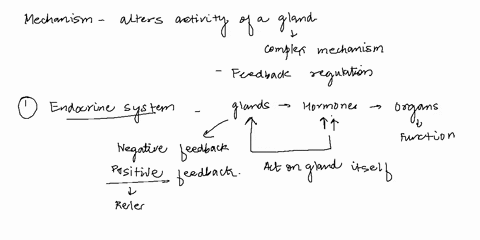 Mechanism - alters activity of a gland
complex mechanism
- Feedback regulation
① Endocrine system - glands → Hormones → Organs
Function
Negative feedback
Positive feedback.
Act on gland itself
Refer